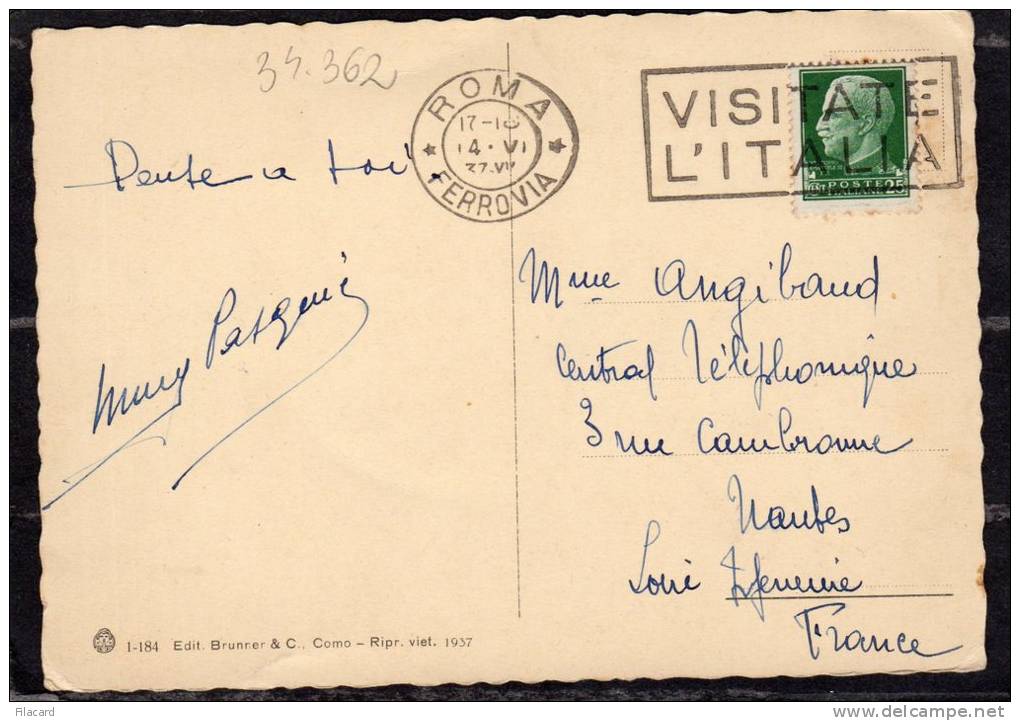 34.362
ROMA
17-18
14·VI
37·XV
FERROVIA
VISITATE
L'ITALIA
POSTE
25
Pense à toi
Mme Angibaud
Central Téléphonique
3 rue Cambronne
Nantes
Loire Inférieure
France
1-184 Edit. Brunner & C., Como – Ripr. viet. 1937
Filacard
www.delcampe.net